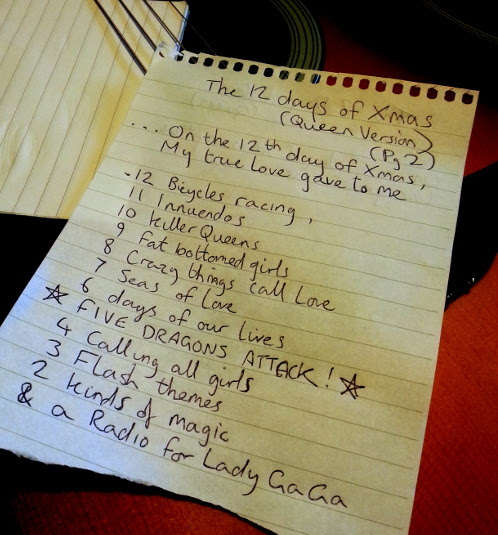 The 12 days of Xmas
(Queen Version)
(Pg 2)
... On the 12th day of Xmas,
My true love gave to me
-12 Bicycles racing,
11 Innuendos
10 Killer Queens
9 Fat bottomed girls
8 Crazy things call Love
7 Seas of Love
6 days of our lives
☆ FIVE DRAGONS ATTACK! ☆
4 Calling all girls
3 Flash themes
2 kinds of magic
& a Radio for Lady GaGa